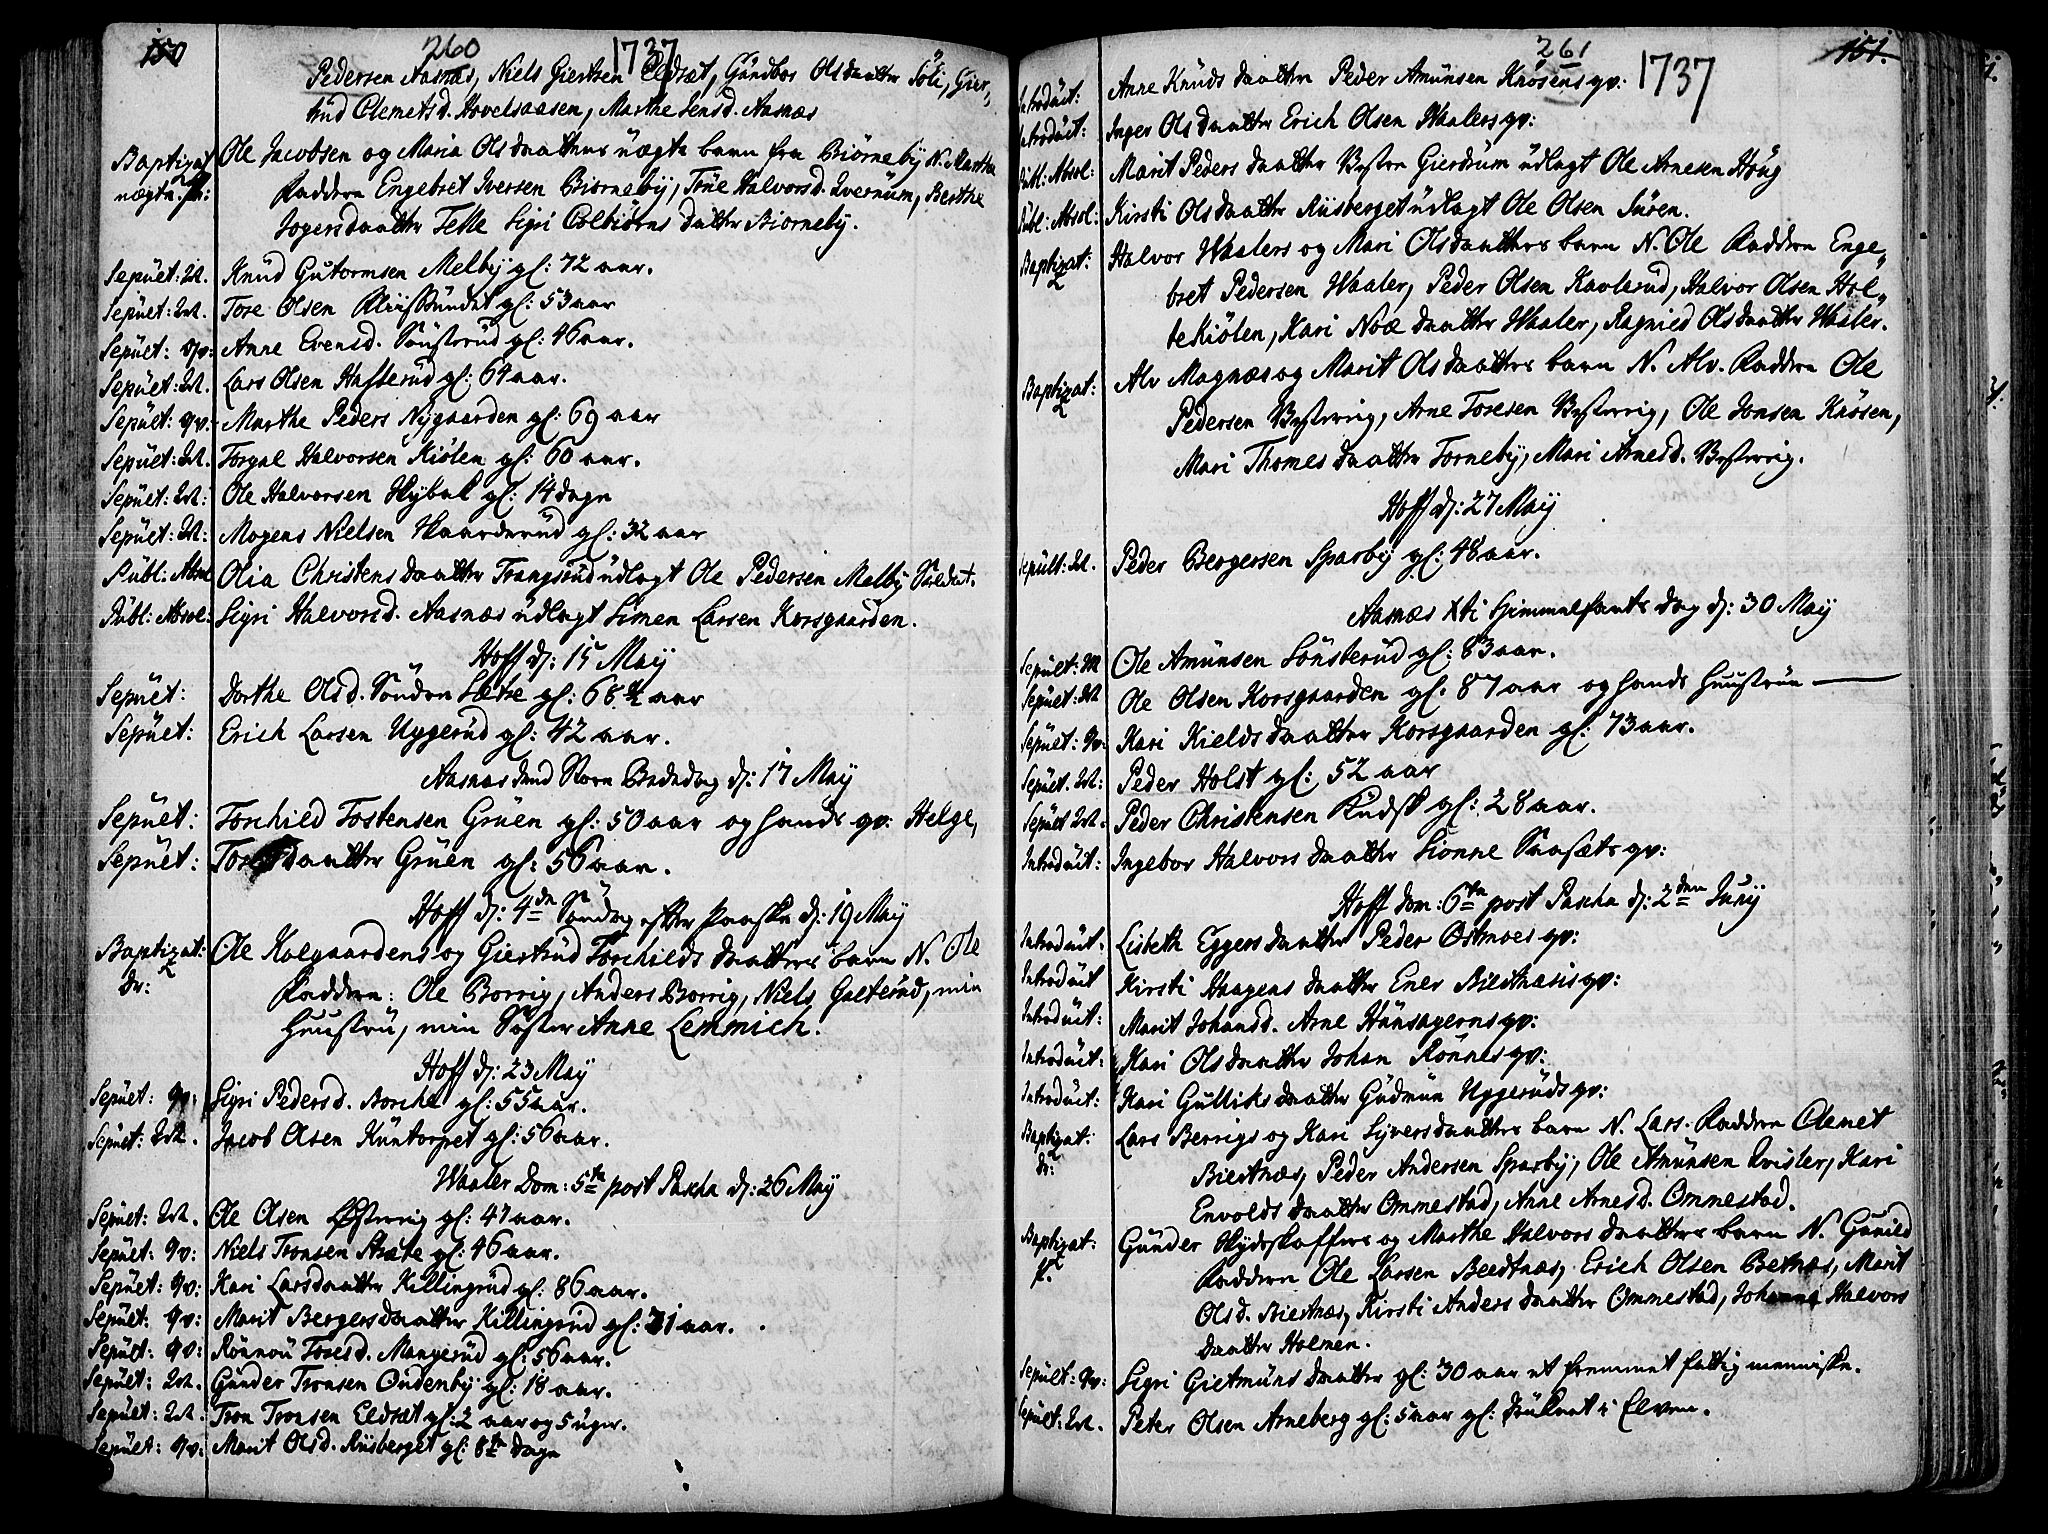 150
260
1737
Pedersen Aasnæs, Niels Giertsen Eldsæt, Gundbor Olsdaatter Söli, Gier-
trud Clemetsd. Hovelsaasen, Marthe Jensd. Aasnæs
Baptizat Ole Jacobsen og Maria Olsdaatters uægte barn fra Biörneby N. Marthe
uægte: Faddere Engebret Iversen Biorneby, True Halvorsd. Ivernum, Berthe
Jogersdaatter Telle Sigri Colbiörns datter Biorneby.
Sepult: M. Knud Gutormsen Melby gl: 72 aar.
Sepult: M. Tore Olsen gl: 53 aar
Sepult: qv: Anne Evensd. Sönsterud gl: 46 aar.
Sepult: M. Lars Olsen Hafterud gl: 64 aar.
Sepult: qv: Marthe Peders Nygaarden gl: 69 aar
Sepult: M. Torgal Halvorsen Kiölen gl: 60 aar.
Sepult: M: Ole Halvorsen Skybak gl: 14 dage
Sepult: M: Mogens Nielsen Skaarderud gl: 32 aar
Publ: Absol Olia Christens daatter Trangsrud udlagt Ole Pedersen Melby Soldat.
Publ: Absol: Sigri Halvorsd. Aasnæs udlagt Simen Larsen Korsgaarden.
Hoff d: 15 May
Sepult: Dorthe Olsd. Söndre Sætre gl: 68 1/2 aar
Sepult: Erich Larsen Uggerud gl: 42 aar.
Aasnæs dend Store Bededag d: 17 May
Sepult: Torchild Tostensen Gruen gl: 50 aar og hands qv: Helge,
Sepult: Toresdaatter Gruen gl: 56 aar.
Hoff d: 4de Söndag efter Paaske d: 19 May
Baptizat: Ole Kalgaardens og Giertrud Torchilds daatters barn N. Ole
dr: Faddere: Ole Borrig, Anders Borrig, Niels Galterud, min
Huustru, min Söster Anne Lemmich.
Hoff d: 23 May
Sepult: qv: Sigri Pedersd. Borche gl: 55 aar.
Sepult: M. Jacob Olsen Kuntorpet gl: 56 aar.
Waaler Dom: 5te post Pascha d: 26 May
Sepult: M. Ole Olsen Östervig gl: 47 aar.
Sepult: qv: Niels Tronsen Stræte gl: 46 aar.
Sepult: qv: Kari Larsdaatter Killingrud gl: 86 aar.
Sepult: qv: Marit Bergersdaatter Killingrud gl: 71 aar.
Sepult: qv: Rönnou Toresd. Mangerud gl: 56 aar.
Sepult: M. Gunder Tronsen Oudenby gl: 18 aar.
Sepult: M. Tron Tronsen Eldsæt gl: 2 aar og 5 uger.
Sepult: qv: Marit Olsd. Riisberget gl: 8te dage
151.
261
1737
Introduct: Anne Knuds daatter Peder Amunsen Knösens qv:
Introduct: Inger Olsdaatter Erich Olsen Waalers qv:
Publ: Absol: Marit Peders daatter Vestre Gierdrum udlagt Ole Arnesen Houg
Publ: Absol: Kirsti Olsdaatter Riisberget udlagt Ole Olsen Suren.
Baptizat: Halvor Waalers og Mari Olsdaatters barn N. Ole Faddere Enge-
bret Pedersen Waaler, Peder Olsen Kavlerud, Halvor Olsen Hol-
tekiölen, Kari Noæ daatter Waaler, Ragnied Olsdaatter Waaler.
Baptizat: Alv Magnæs og Marit Olsdaatters barn N. Alv. Faddere Ole
Pedersen Vestervig, Arne Toresen Vestervig, Ole Jonsen Knösen,
Mari Thomes daatter Torneby, Mari Arnesd. Vestervig.
Hoff d: 27 May
Sepult: M. Peder Bergersen Sparby gl: 48 aar.
Aasnæs Xti Himmelfarts dag d: 30 May
Sepult: M Ole Amunsen Sönsterud gl: 83 aar.
Sepult: M Ole Olsen Korsgaarden gl. 87 aar og hands Huustrue
Sepult: qv: Kari Kields daatter Korsgaarden gl: 73 aar.
Sepult: M: Peder Holst gl: 52 aar
Sepult M. Peder Christensen Kudsk gl: 28 aar.
Introduct: Ingebor Halvors daatter Sionne qv:
Hoff Dom: 6te post Pascha d: 2den Junij
Introduct: Lisbeth Eggers daatter Peder Ostmoes qv:
Introduct Kirsti Haagens daatter Ener Biertnæsis qv:
Introduct: Marit Johansd. Arne Hansagerns qv:
Introduct: Kari Olsdaatter Johan Rönnes qv:
Introduct: Kari Gulliksdaatter Gudmun Uggeruds qv:
Baptizat: Lars Berrigs og Kari Syversdaatters barn N. Lars. Faddere Clemet
dr: Biertnæs, Peder Andersen Sparby, Ole Amunsen Qvisler, Kari
Envolds daatter Ommestad, Anne Arnesd. Ommestad.
Baptizat: Gunder Skydskaffers og Marthe Halvors daatters barn N. Gunild
p. Faddere Ole Larsen Beedtnæs, Erich Olsen Betnæs, Marit
Olsd. Biertnæs, Kirsti Anders daatter Ommestad, Johanne Halvors
daatter Holmen.
Sepult: qv: Sigri Gietmuns daatter gl: 30 aar et fremmet fattig menniske.
Sepult: M. Peter Olsen Arneberg gl: 5 aar gl: druknet i Elven.